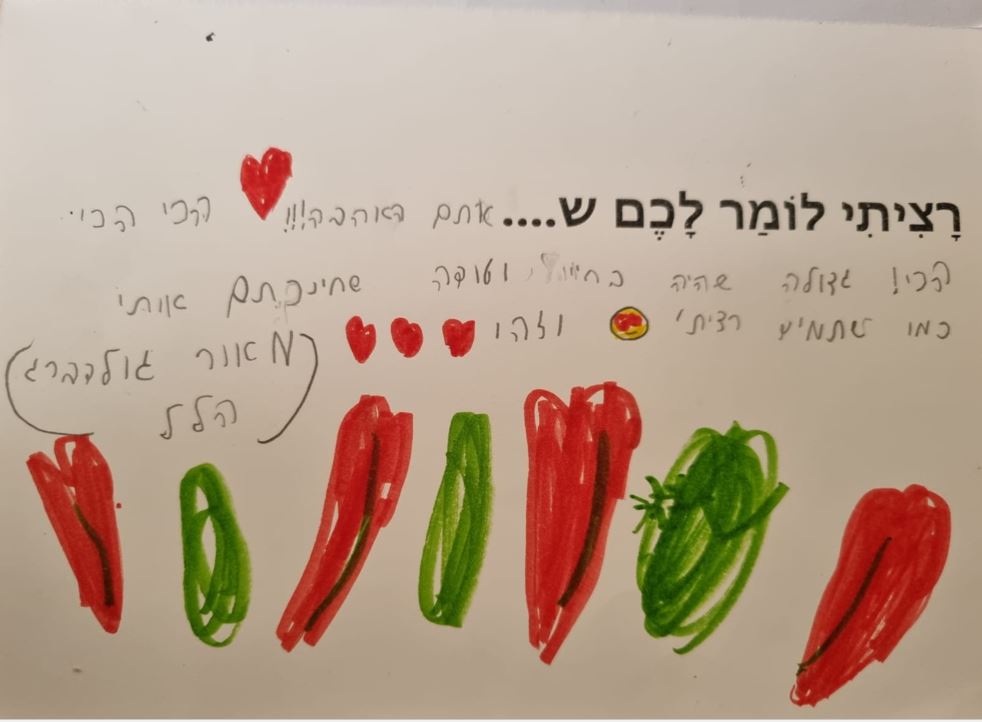 רָצִיתִי לוֹמַר לָכֶם ש.... אתם האהבה!!! הכי הכי
הכי! גדולה שהיה בחיי, ותודה שחינכתם אותי
כמו שתמיד רציתי וזהו
(מאור גולדברג
הלל)